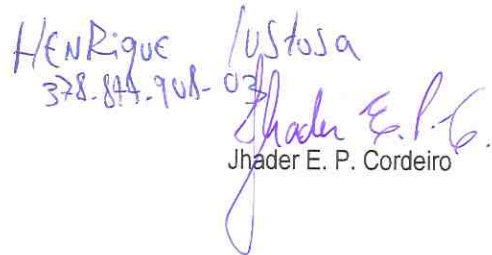 HENRiQUE LUStosa
378.844.908-03
Jhader E. P. C.
Jhader E. P. Cordeiro